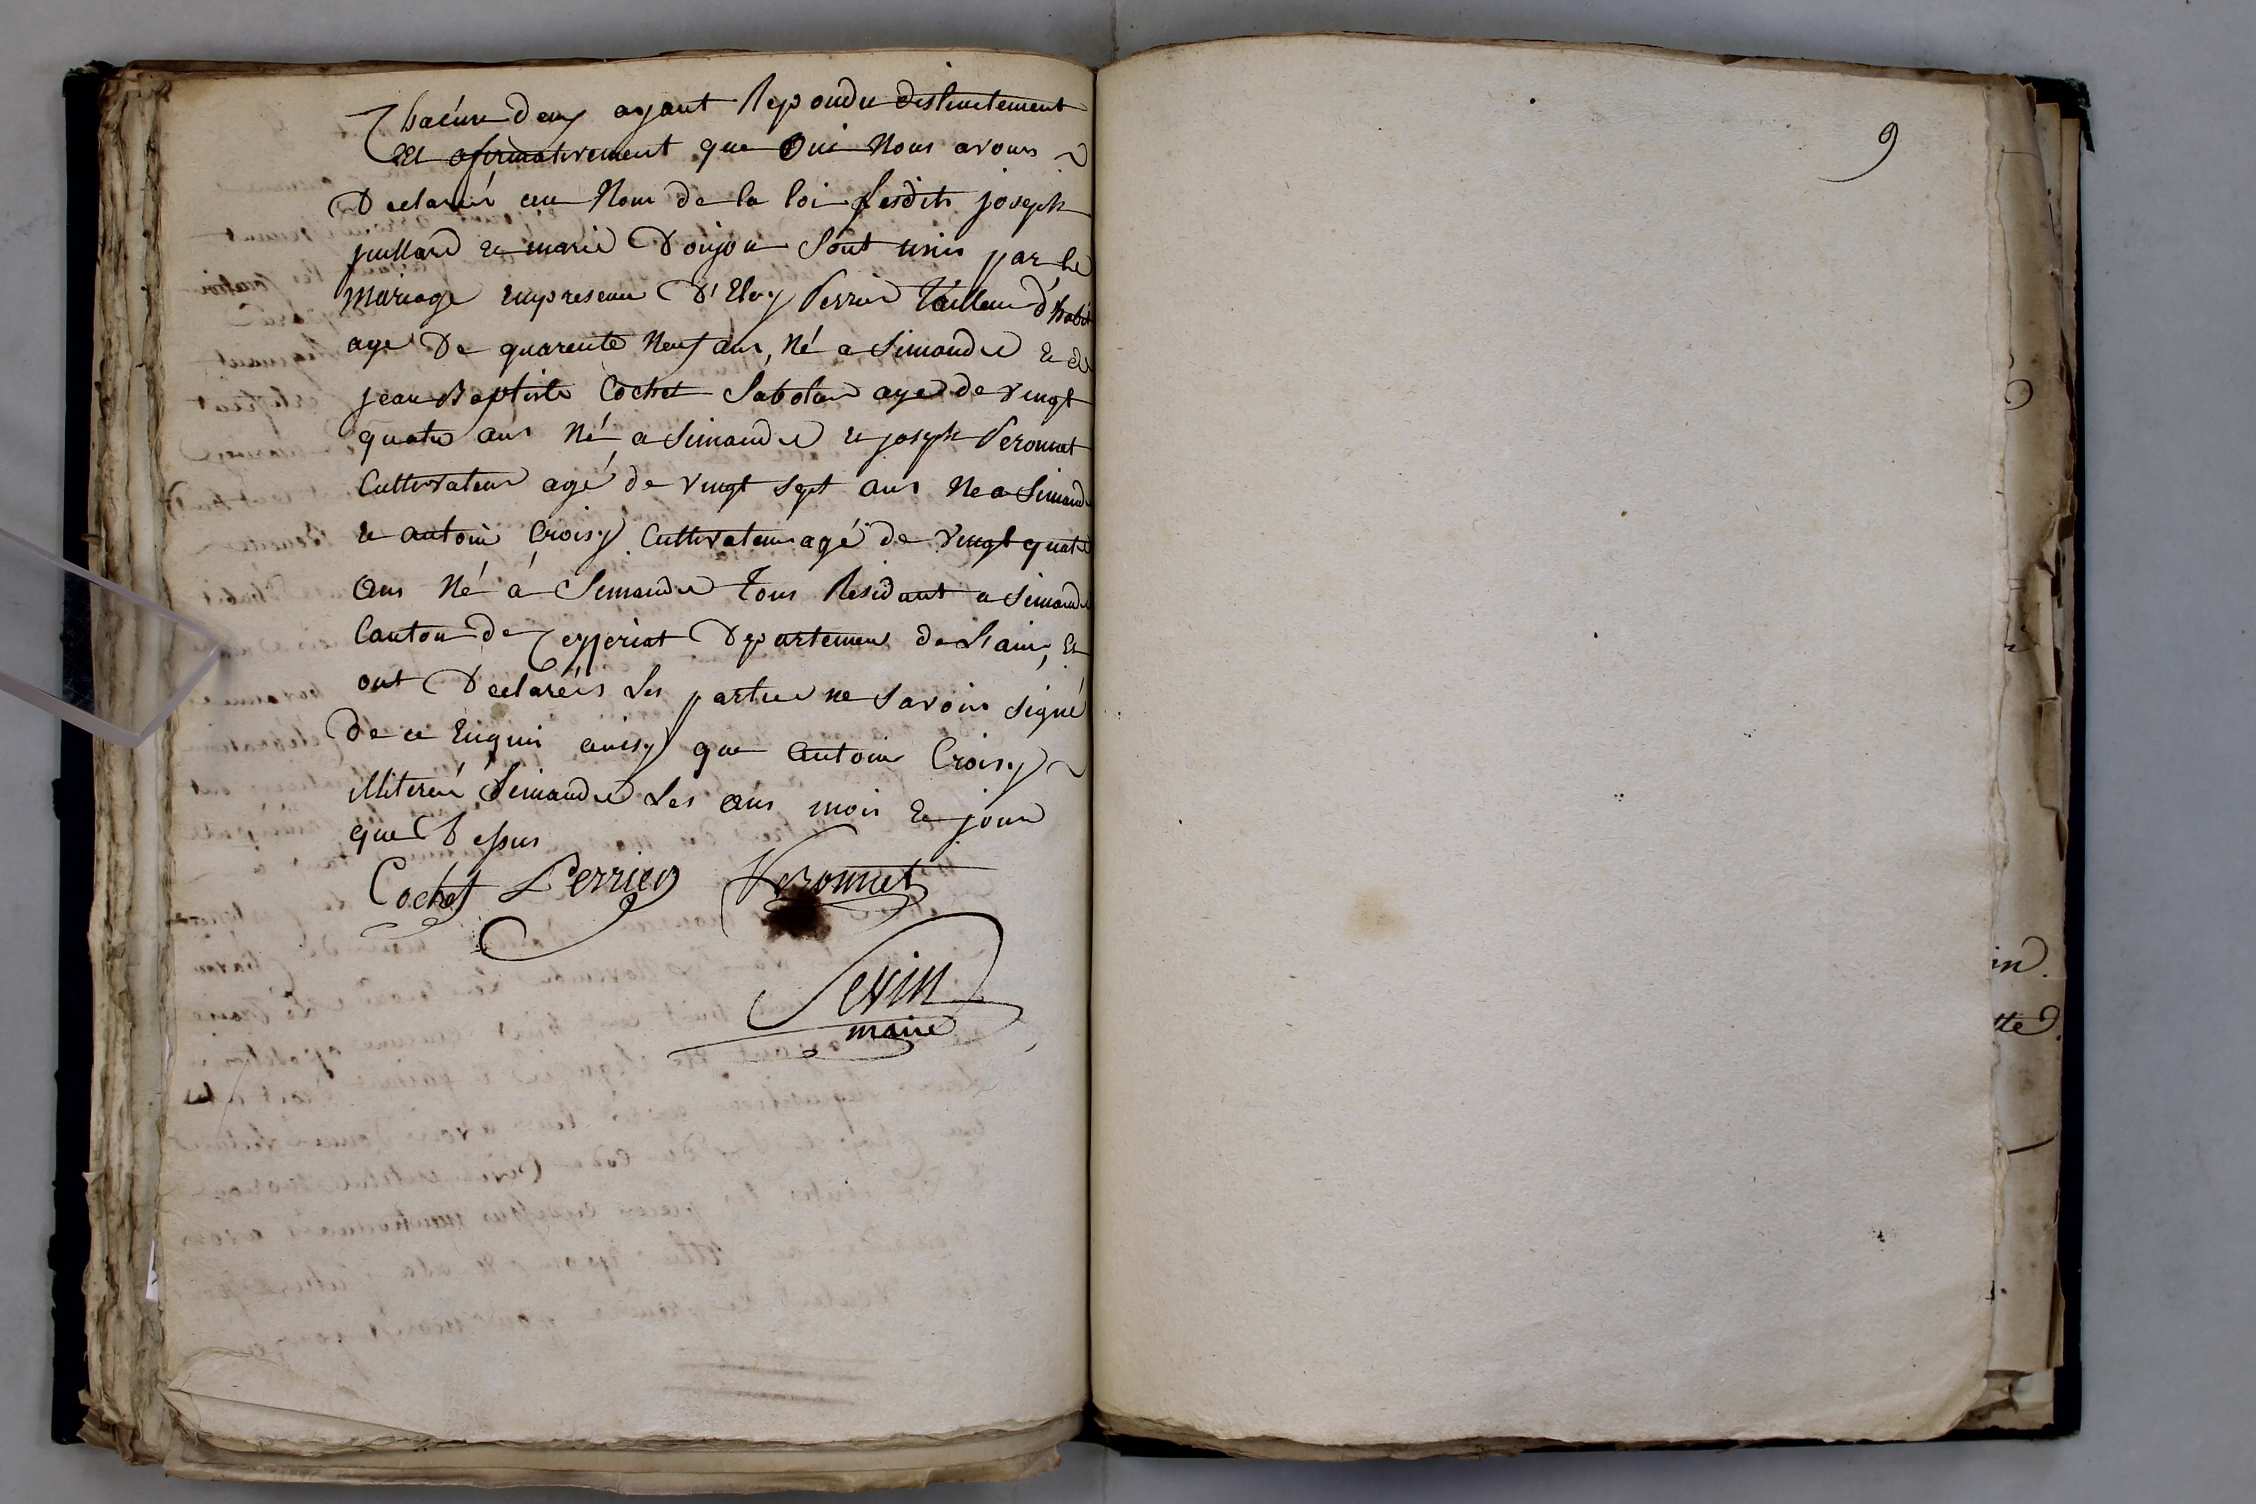 Chacun deux ayant Repondu distinctement
Et afirmativement que Oui Nous avons
Declarés au Nom de la loi Lesdits joseph
juillard et marie Donjon Sont unis par le
mariage enpresence D'Eloy Perrin Tailleur d'habit
age De quarente Neuf ans, Né a Simandre et de
jean Baptiste Cochet Sabotier age de vingt
quatre ans Né a Simandre et joseph Peronnet
Cultivateur agé de vingt sept ans Ne a Simandre
et antoine Croisy Cultivateur agé de vingt quatre
ans Né á Simandre Tous Residant a Simandre
Canton de Ceyzeriat Departement de L'ain, Et
ont Declarées Les parties ne Savoir signé
de ce Enquis ainsy que antoine Croisy
illiterés Simandre Les ans mois et jour
que Dessus
Cochet Perrien Peronnet
Sevin
maire
9
in.
tte